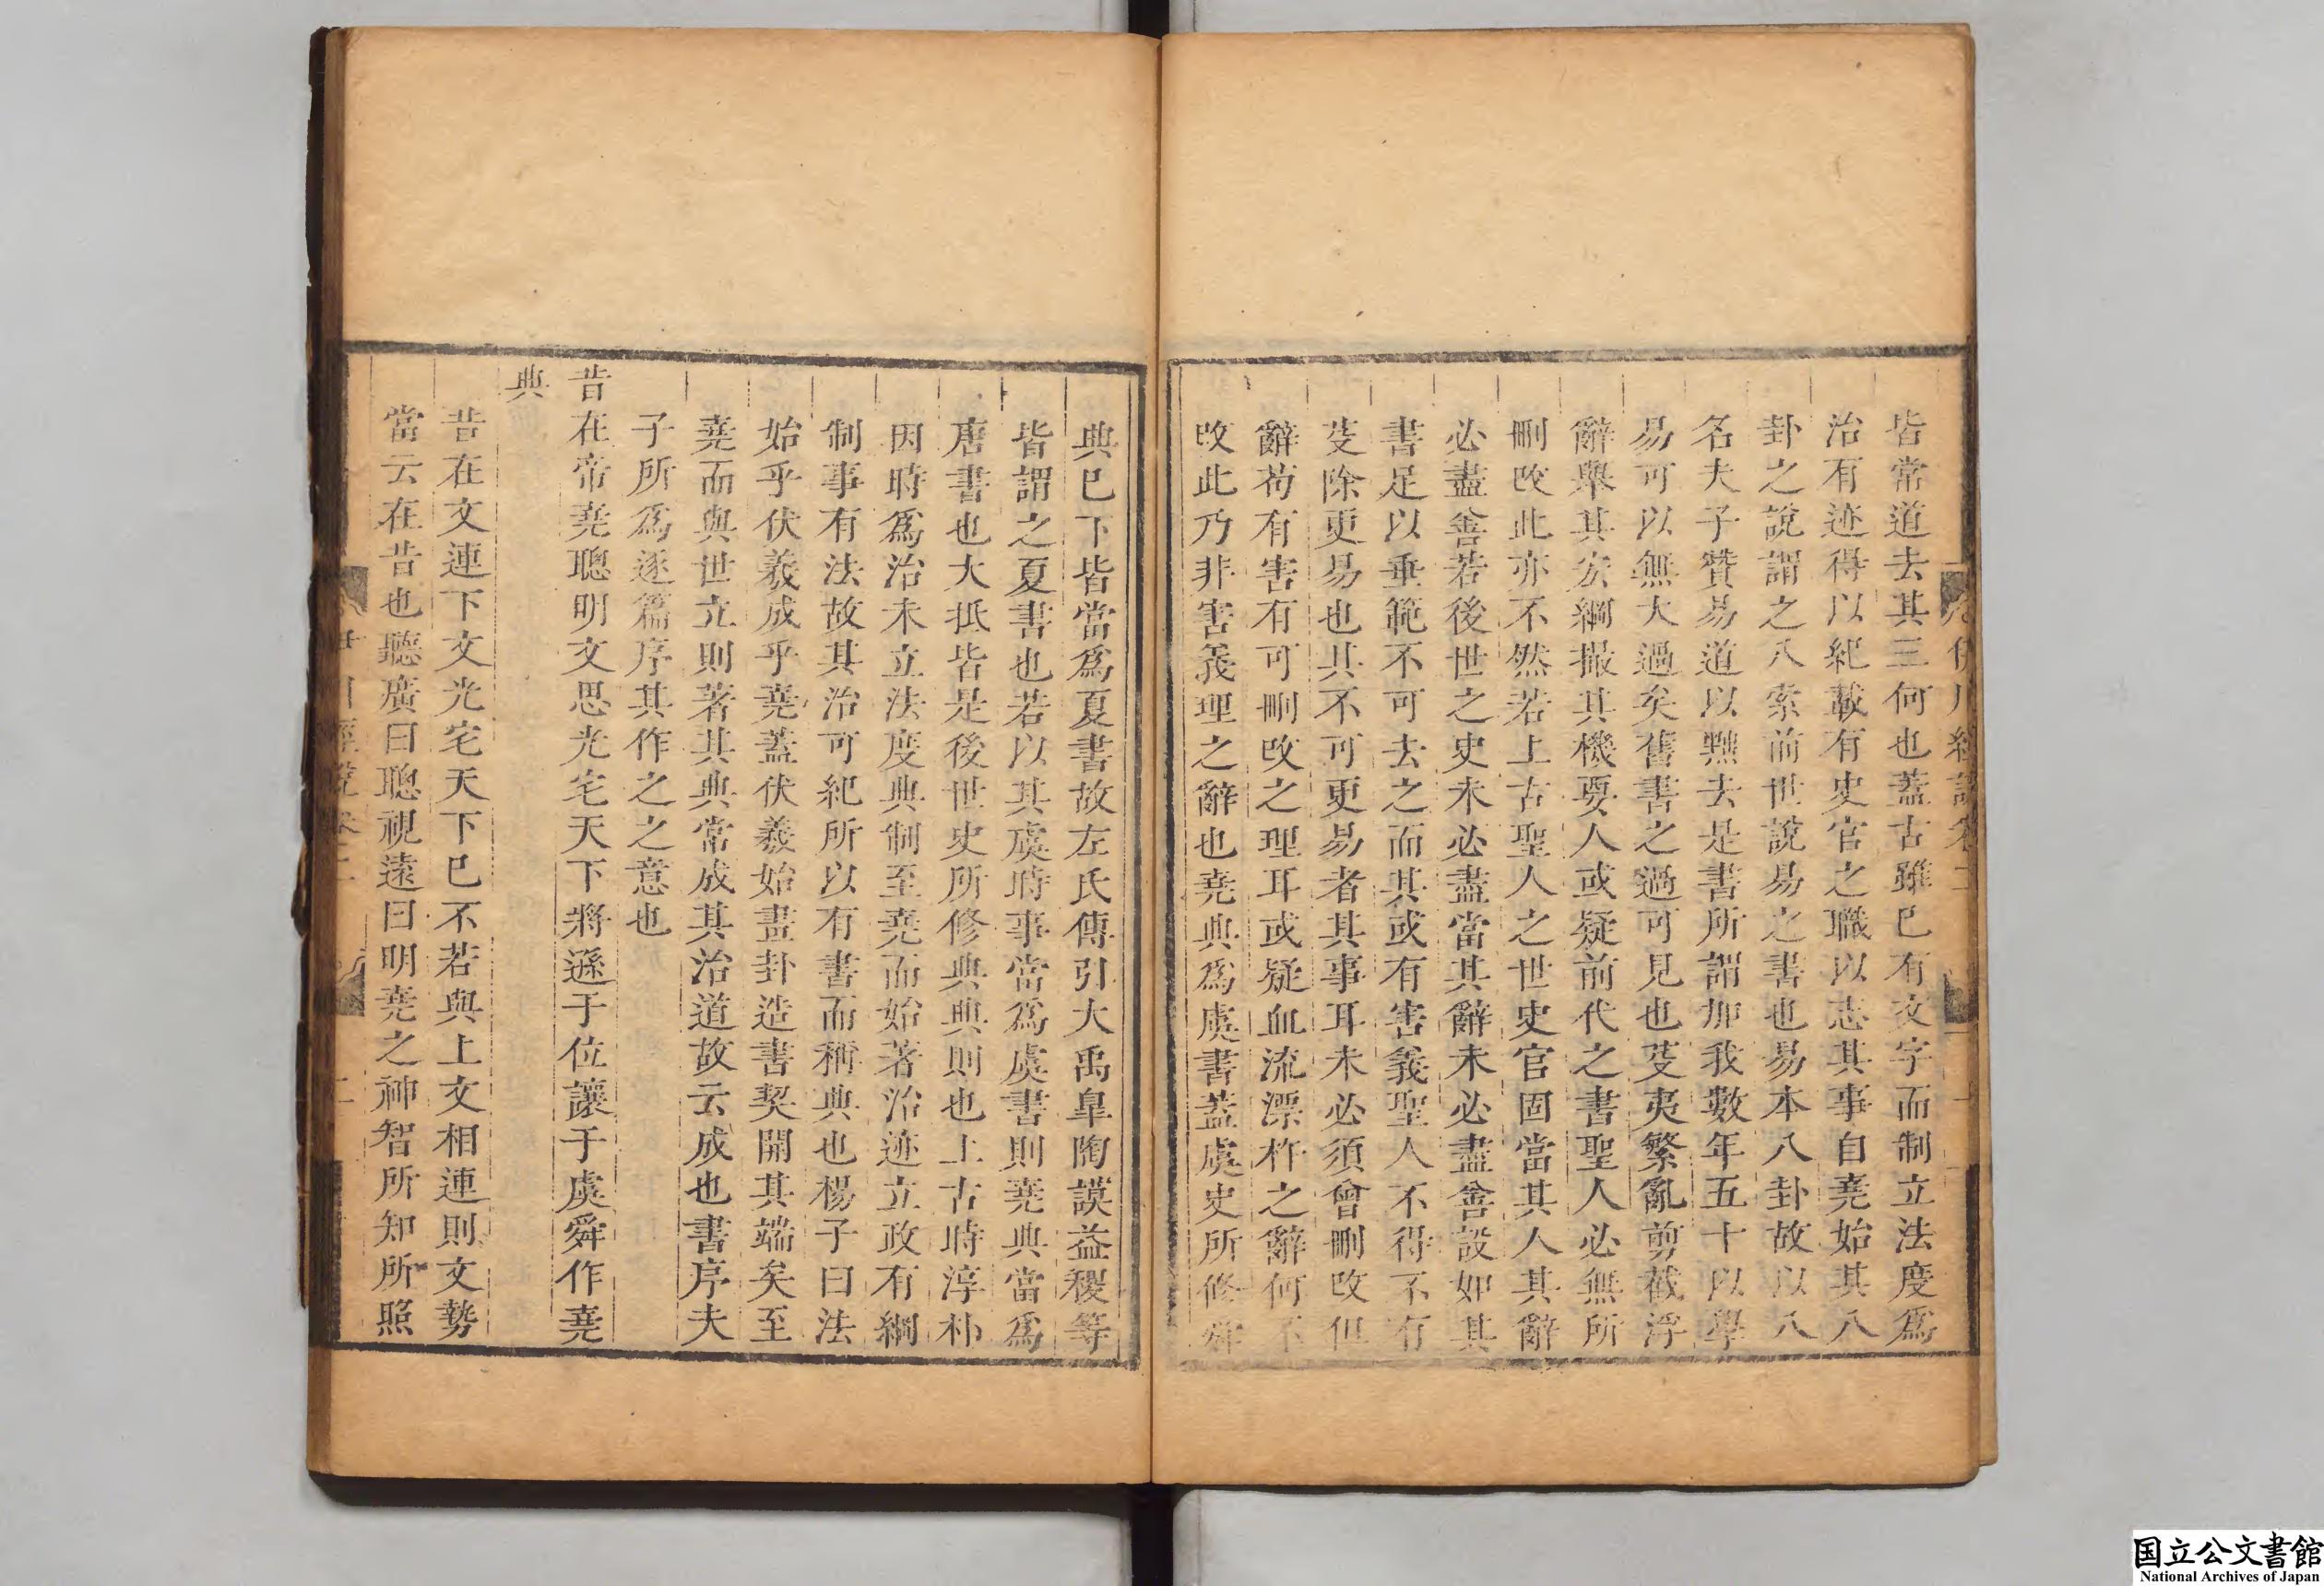 皆常道去其三何也蓋古雖已有文字而制立法度爲
治有迹得以紀載有史官之職以志其事自堯始其八
卦之說謂之八索前世說易之書也易本八卦故以八
名夫子贊易道以黜去是書所謂加我數年五十以學
易可以無大過矣舊書之過可見也芟夷繁亂剪截浮
辭舉其宏綱撮其機要人或疑前代之書聖人必無所
刪改此亦不然若上古聖人之世史官固當其人其辭
必盡善若後世之史未必盡當其辭未必盡善設如其
書足以垂範不可去之而其或有害義聖人不得不有
芟除更易也其不可更易者其事耳未必須曾刪改但
辭苟有害有可刪改之理耳或疑血流漂杵之辭何不
改此乃非害義理之辭也堯典爲虞書蓋虞史所修舜
典已下皆當爲夏書故左氏傳引大禹臯陶謨益稷等
皆謂之夏書也若以其虞時事當爲虞書則堯典當爲
唐書也大抵皆是後世史所修典典則也上古時淳朴
因時爲治未立法度典制至堯而始著治迹立政有綱
制事有法故其治可紀所以有書而稱典也楊子曰法
始乎伏羲成乎堯蓋伏羲始畫卦造書契開其端矣至
堯而與世立則著其典常成其治道故云成也書序夫
子所爲逐篇序其作之之意也
昔在帝堯聰明文思光宅天下將遜于位讓于虞舜作堯
典
昔在文連下文光宅天下已不若與上文相連則文勢
當云在昔也聽廣曰聰視遠曰明堯之神智所知所照
国立公文書館
National Archives of Japan